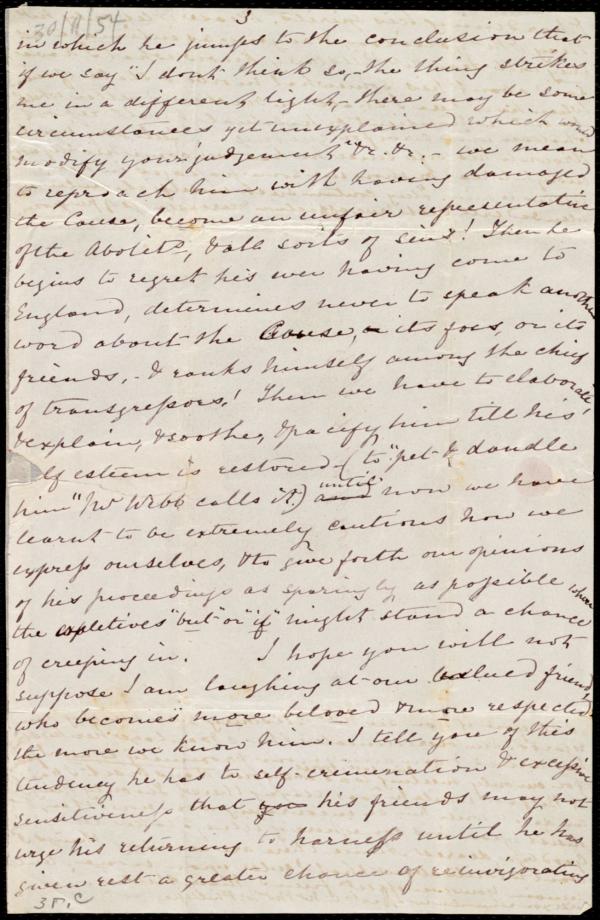 3
30/11/54
in which he jumps to the conclusion that
if we say "I dont think so,- the thing strikes
me in a different light,- there may be some
circumstances yet unexplained which would
modify your judgement" &c. &c. - we mean
to reproach him with having damaged
the Cause, become an unfair representative
of the Abolitns, & all sorts of sins! Then he
begins to regret his ever having come to
England, determines never to speak another
word about the Cause, its foes, or its
friends,- & ranks himself among the chief
of transgressors! Then we have to elaborate
& explain, & soothe, & pacify him till his
lf esteem is restored - (to "pet & dandle
him" Webb calls it) until now we have
learnt to be extremely cautious how we
express ourselves, & to give forth our opinions
of his proceedings as sparingly as possible when
the expletives "but" or "if" might stand a chance
of creeping in. I hope you will not
suppose I am laughing at our valued friend,
who becomes more beloved & more respected
the more we know him. I tell you of this
tendency he has to self-crimination & excessive
sensitiveness that his friends may not
urge his returning to harness until he has
given rest a greater chance of reinvigorating